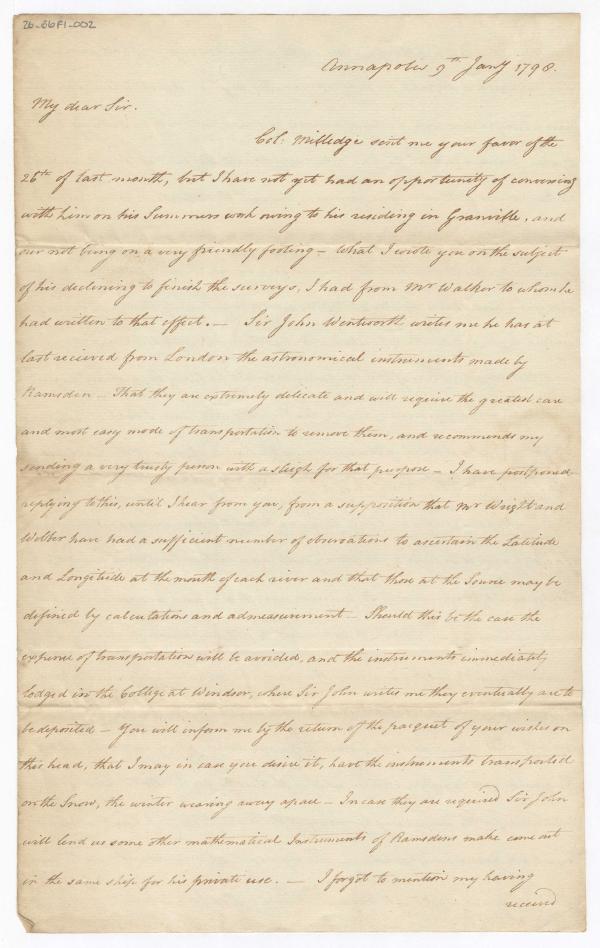 26-66F1-002
Annapolis 9th Jany 1798.
My dear Sir.
Col: Milledge sent me your favor of the
26th of last month, but I have not yet had an opportunity of conversing
with him on his Summers work owing to his residing in Granville, and
our not being on a very friendly footing - What I wrote you on the subject
of his declining to finish the surveys, I had from Mr Walker to whom he
had written to that effect. - Sir John Wentworth writes me he has at
last recieved from London the astronomical instruments made by
Ramsden - That they are extremely delicate and will require the greatest care
and most easy mode of transportation to remove them, and recommends my
sending a very trusty person with a sleigh for that purpose - I have postponed
replying to this, until I hear from you, from a supposition that Mr Wright and
Webber have had a sufficient number of observations to ascertain the Latitude
and Longitude at the mouth of each river and that those at the Source may be
defined by calculations and admeasurement - Should this be the case the
expense of transportation will be avoided, and the instruments immediately
lodged in the College at Windsor, where Sir John writes me they eventually are to
be deposited - You will inform me by the return of the pacquet of your wishes on
this head, that I may in case you desire it, have the instruments transported
on the Snow, the winter wearing away apace - In case they are required Sir John
will lend us some other mathematical Instruments of Ramsdens make come out
in the same ship for his private use. - I forgot to mention my having
received